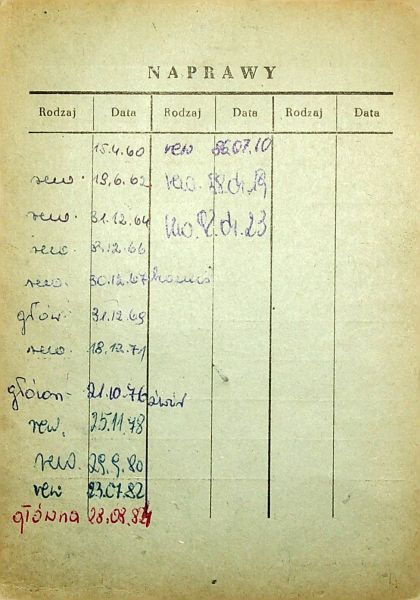 NAPRAWY
Rodzaj Data Rodzaj Data Rodzaj Data
15.4.60 rew 86.07.10
rew. 19.6.62 rew.
rew. 31.12.64
rew. 12.66
rew. 30.12.67
głów. 31.12.69
rew. 18.12.71
główn- 21.10.76
rew. 25.11.78
rew. 29.9.80
rew 23.07.82
główna 28.08.84